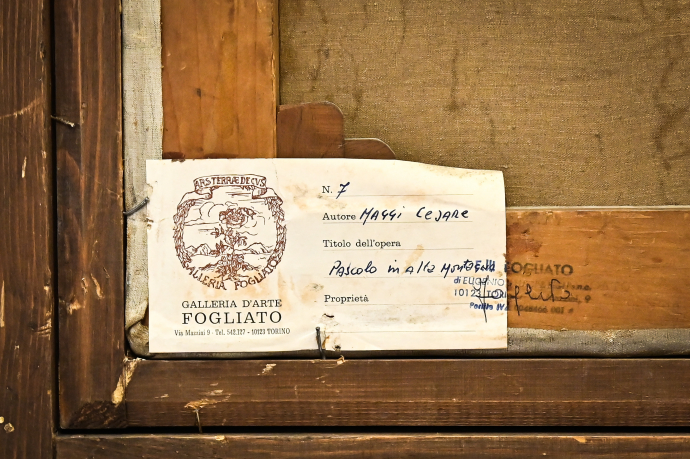 ARS TERRÆ DECVS
GALLERIA FOGLIATO
GALLERIA D'ARTE
FOGLIATO
Via Mazzini 9 - Tel. 542.127 - 10123 TORINO
N. 7
Autore Maggi Cesare
Titolo dell'opera
Pascolo in Alta Montagna
Proprietà
FOGLIATO
di EUGENIO
10123 TORI
Partita IVA